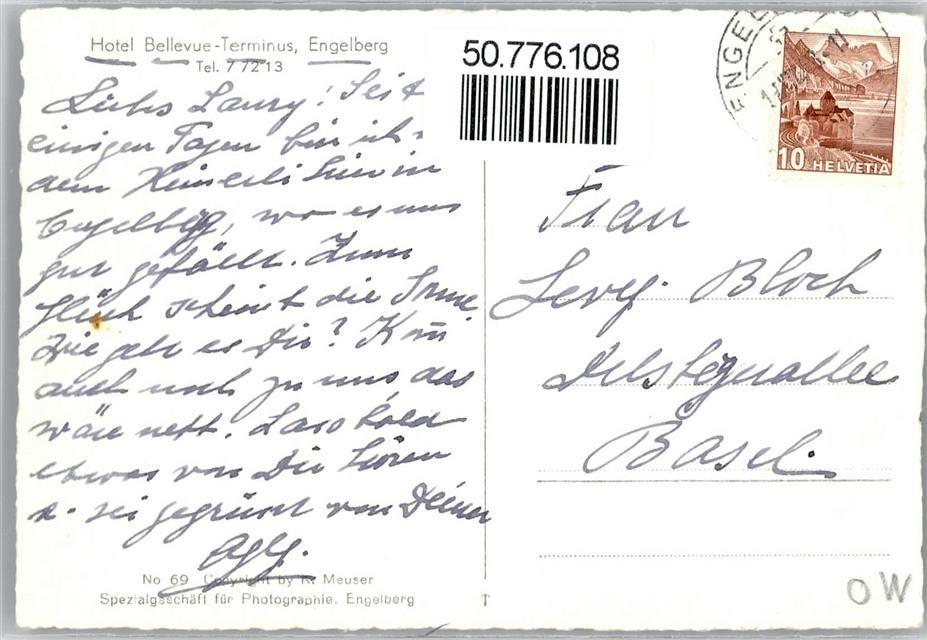 Hotel Bellevue-Terminus, Engelberg
Tel. 7 72 13
Liebs Laury! Seit
einigen Tagen bin ich
dem Heinerli hier in
Engelberg, wo es uns
gut gefällt. Zum
Glück scheint die Sonne
Wie geht es Dir? Kom
auch noch zu uns, das
wäre nett. Lass bald
etwas von Dir hören
u. sei gegrüsst von Deiner
No 69 Copyright by K. Meuser
Spezialgeschäft für Photographie, Engelberg
50.776.108
ENGEL
10 HELVETIA
Frau
Levy-Bloch
Basel.
T
OW